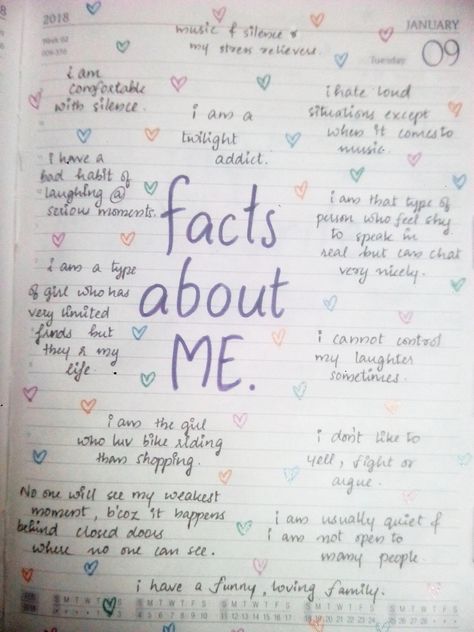 2018
JANUARY
Week 02
009-356
Tuesday
09
music & silence r
my stress relievers.
i am
comfortable
with silence.
i am a
twilight
addict.
i hate loud
situations except
when it comes to
music.
I have a
bad habit of
laughing @
serious moments.
facts
about
ME.
i am that type of
person who feel shy
to speak in
real but can chat
very nicely.
i am a type
of girl who has
very limited
frnds but
they r my
life.
i cannot control
my laughter
sometimes.
i am the girl
who luv bike riding
than shopping.
i don't like to
yell, fight or
argue.
No one will see my weakest
moment, b'coz it happens
behind closed doors
where no one can see.
i am usually quiet &
i am not open to
many people.
i have a funny, loving family.
S M T W T F S S M T W T F S S M T W T F S S M T W T F S